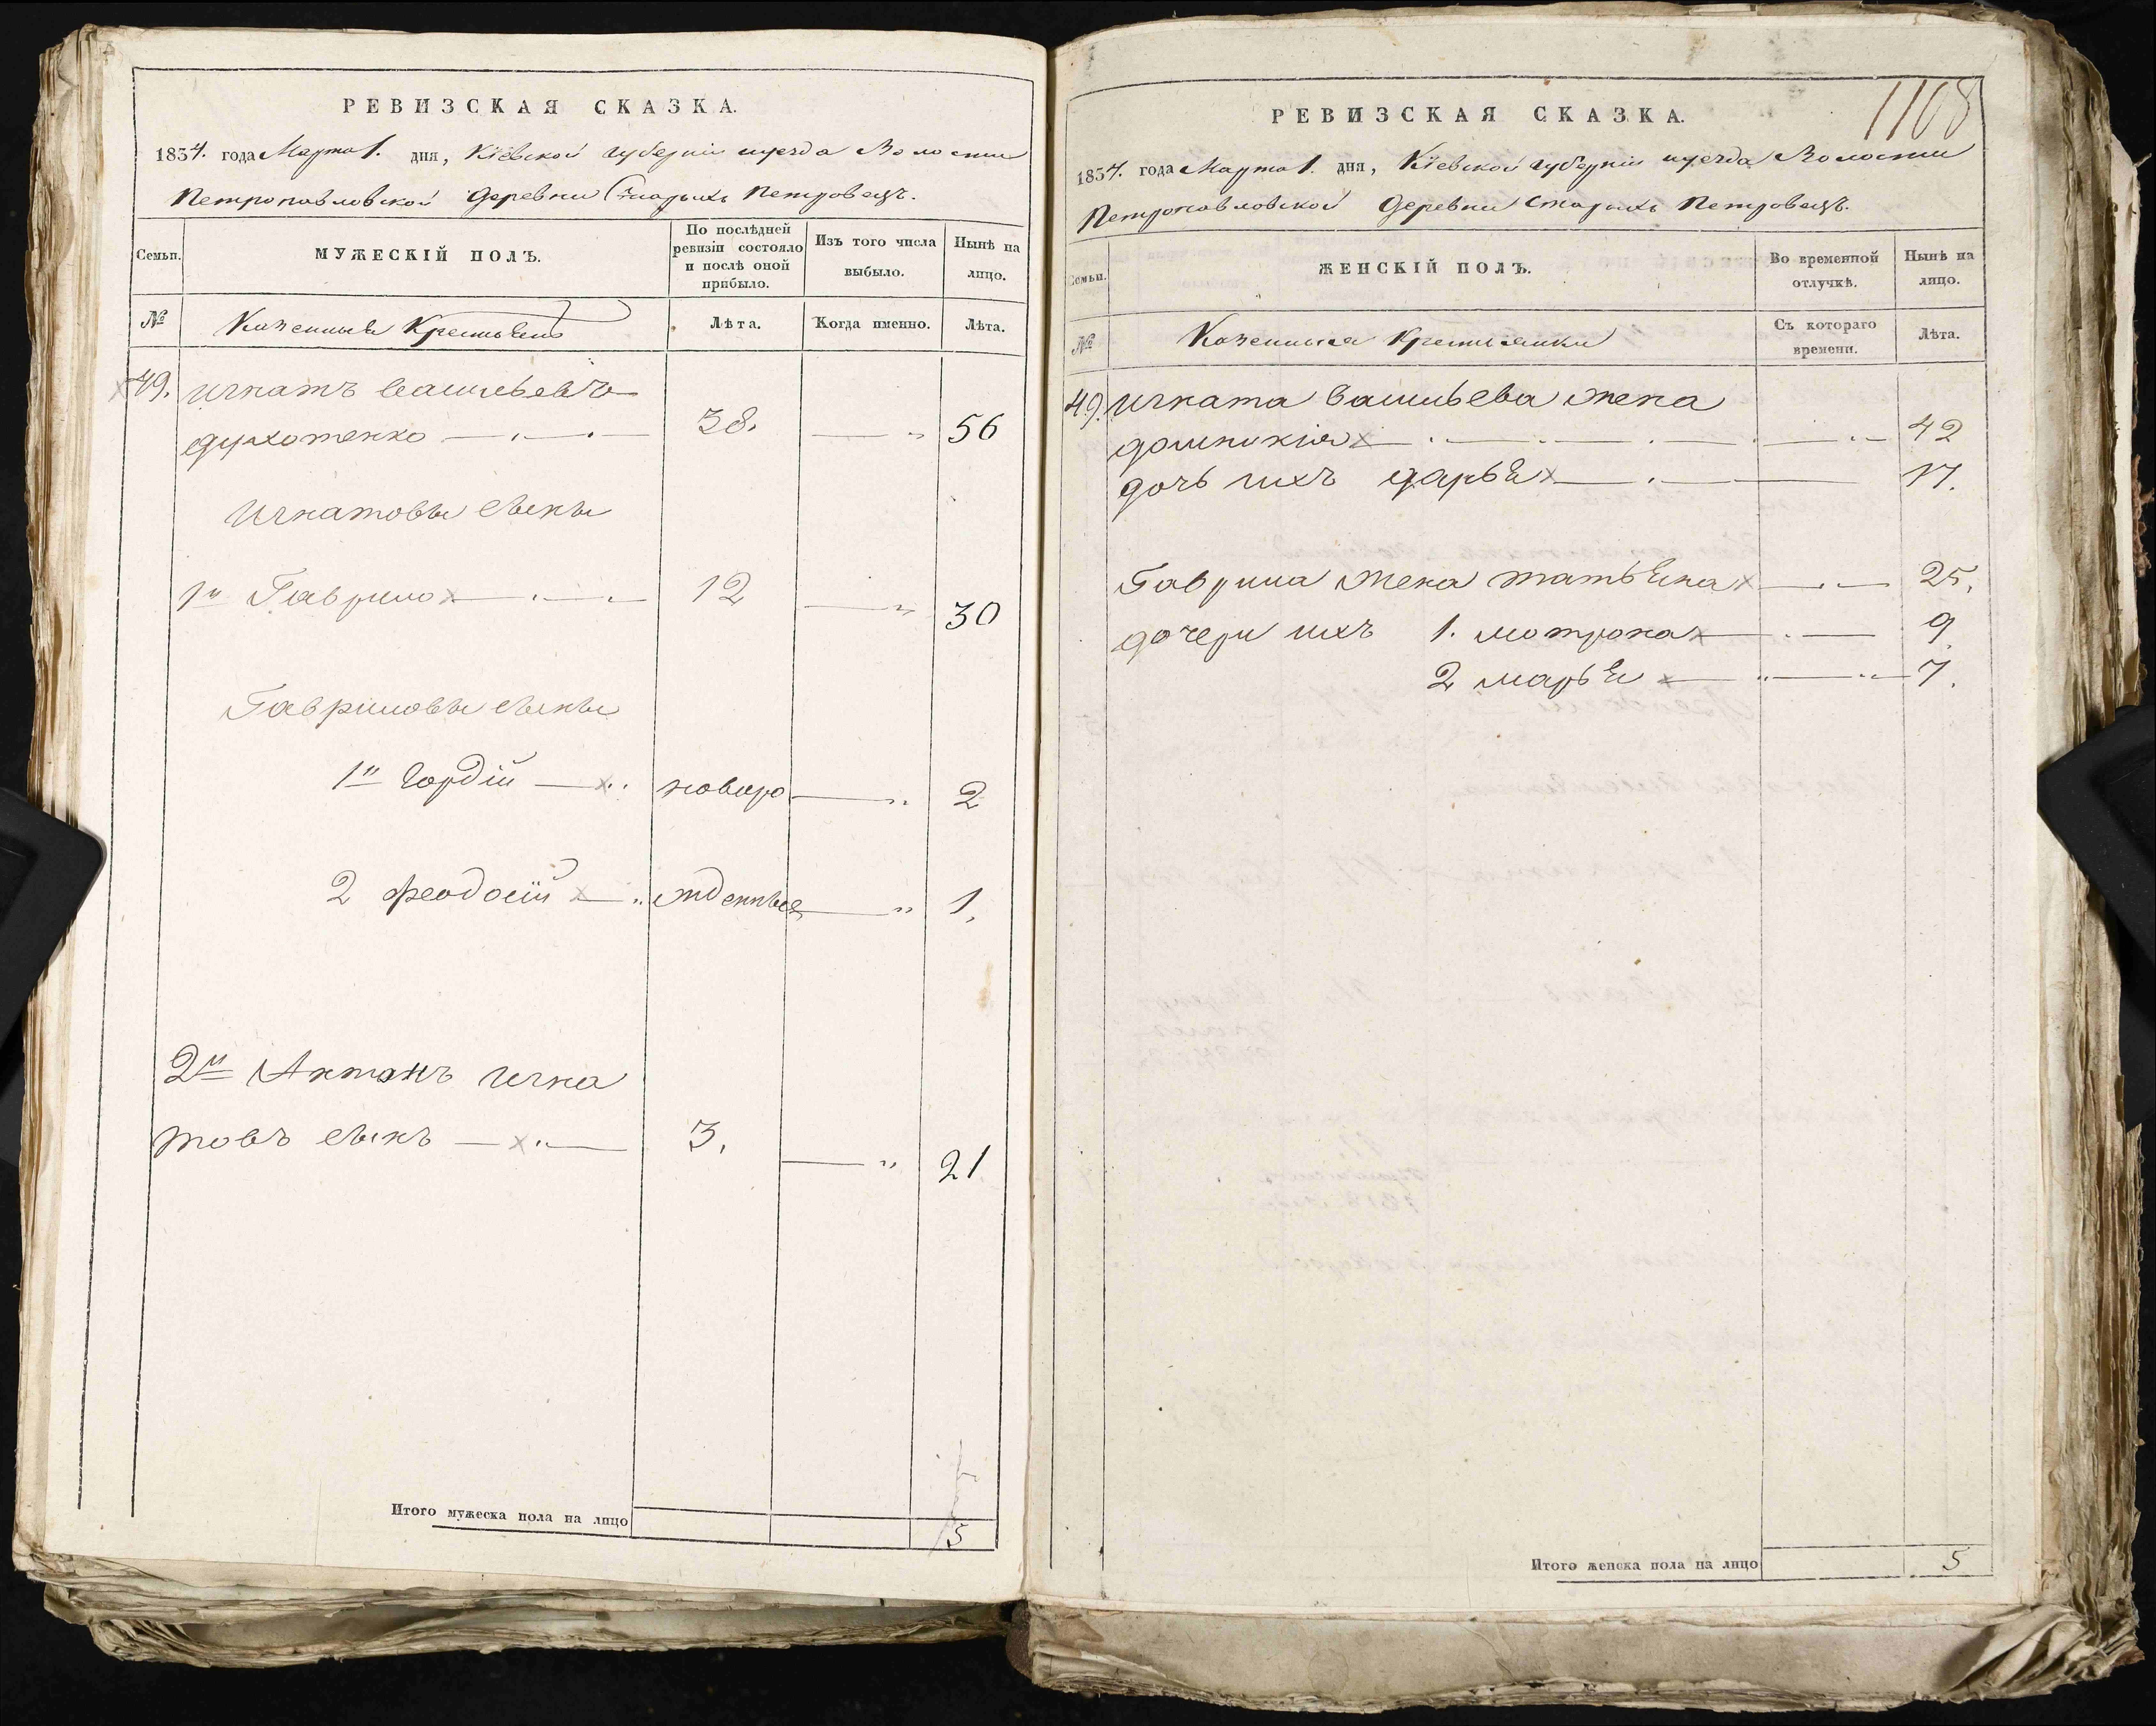 РЕВИЗСКАЯ СКАЗКА.
1834. года Марта 1. дня, Кіевской губерніи и уезда Волости
Петропавловской деревни Старыхъ Петровецъ.
Семьи.
МУЖЕСКІЙ ПОЛЪ.
По послѣдней ревизіи состояло и послѣ оной прибыло.
Изъ того числа выбыло.
Нынѣ на лицо.
№
Казенные Крестьяне
Лѣта.
Когда именно.
Лѣта.
49. Игнатъ Васильевъ
38. 56
Игнатовы сыны
1й Гаврило 12 30
Гавриловы сыны
1й Гордій новоро 2
2 Феодосій жденные 1.
2й Антонъ Игна
товъ сынъ 3. 21
Итого мужеска пола на лицо 5
1108
РЕВИЗСКАЯ СКАЗКА.
1834. года Марта 1. дня, Кіевской губерніи уезда Волости
Петропавловской деревни Старыхъ Петровецъ.
Семьи.
ЖЕНСКІЙ ПОЛЪ.
Во временной отлучкѣ.
Нынѣ на лицо.
№
Казенныя Крестьянки
Съ котораго времени.
Лѣта.
49. Игната Васильева жена
домникія 42
дочь ихъ дарья 17.
Гаврила жена татьяна 25.
дочери ихъ 1. мотрона 9.
2 марья 7.
Итого женска пола на лицо 5